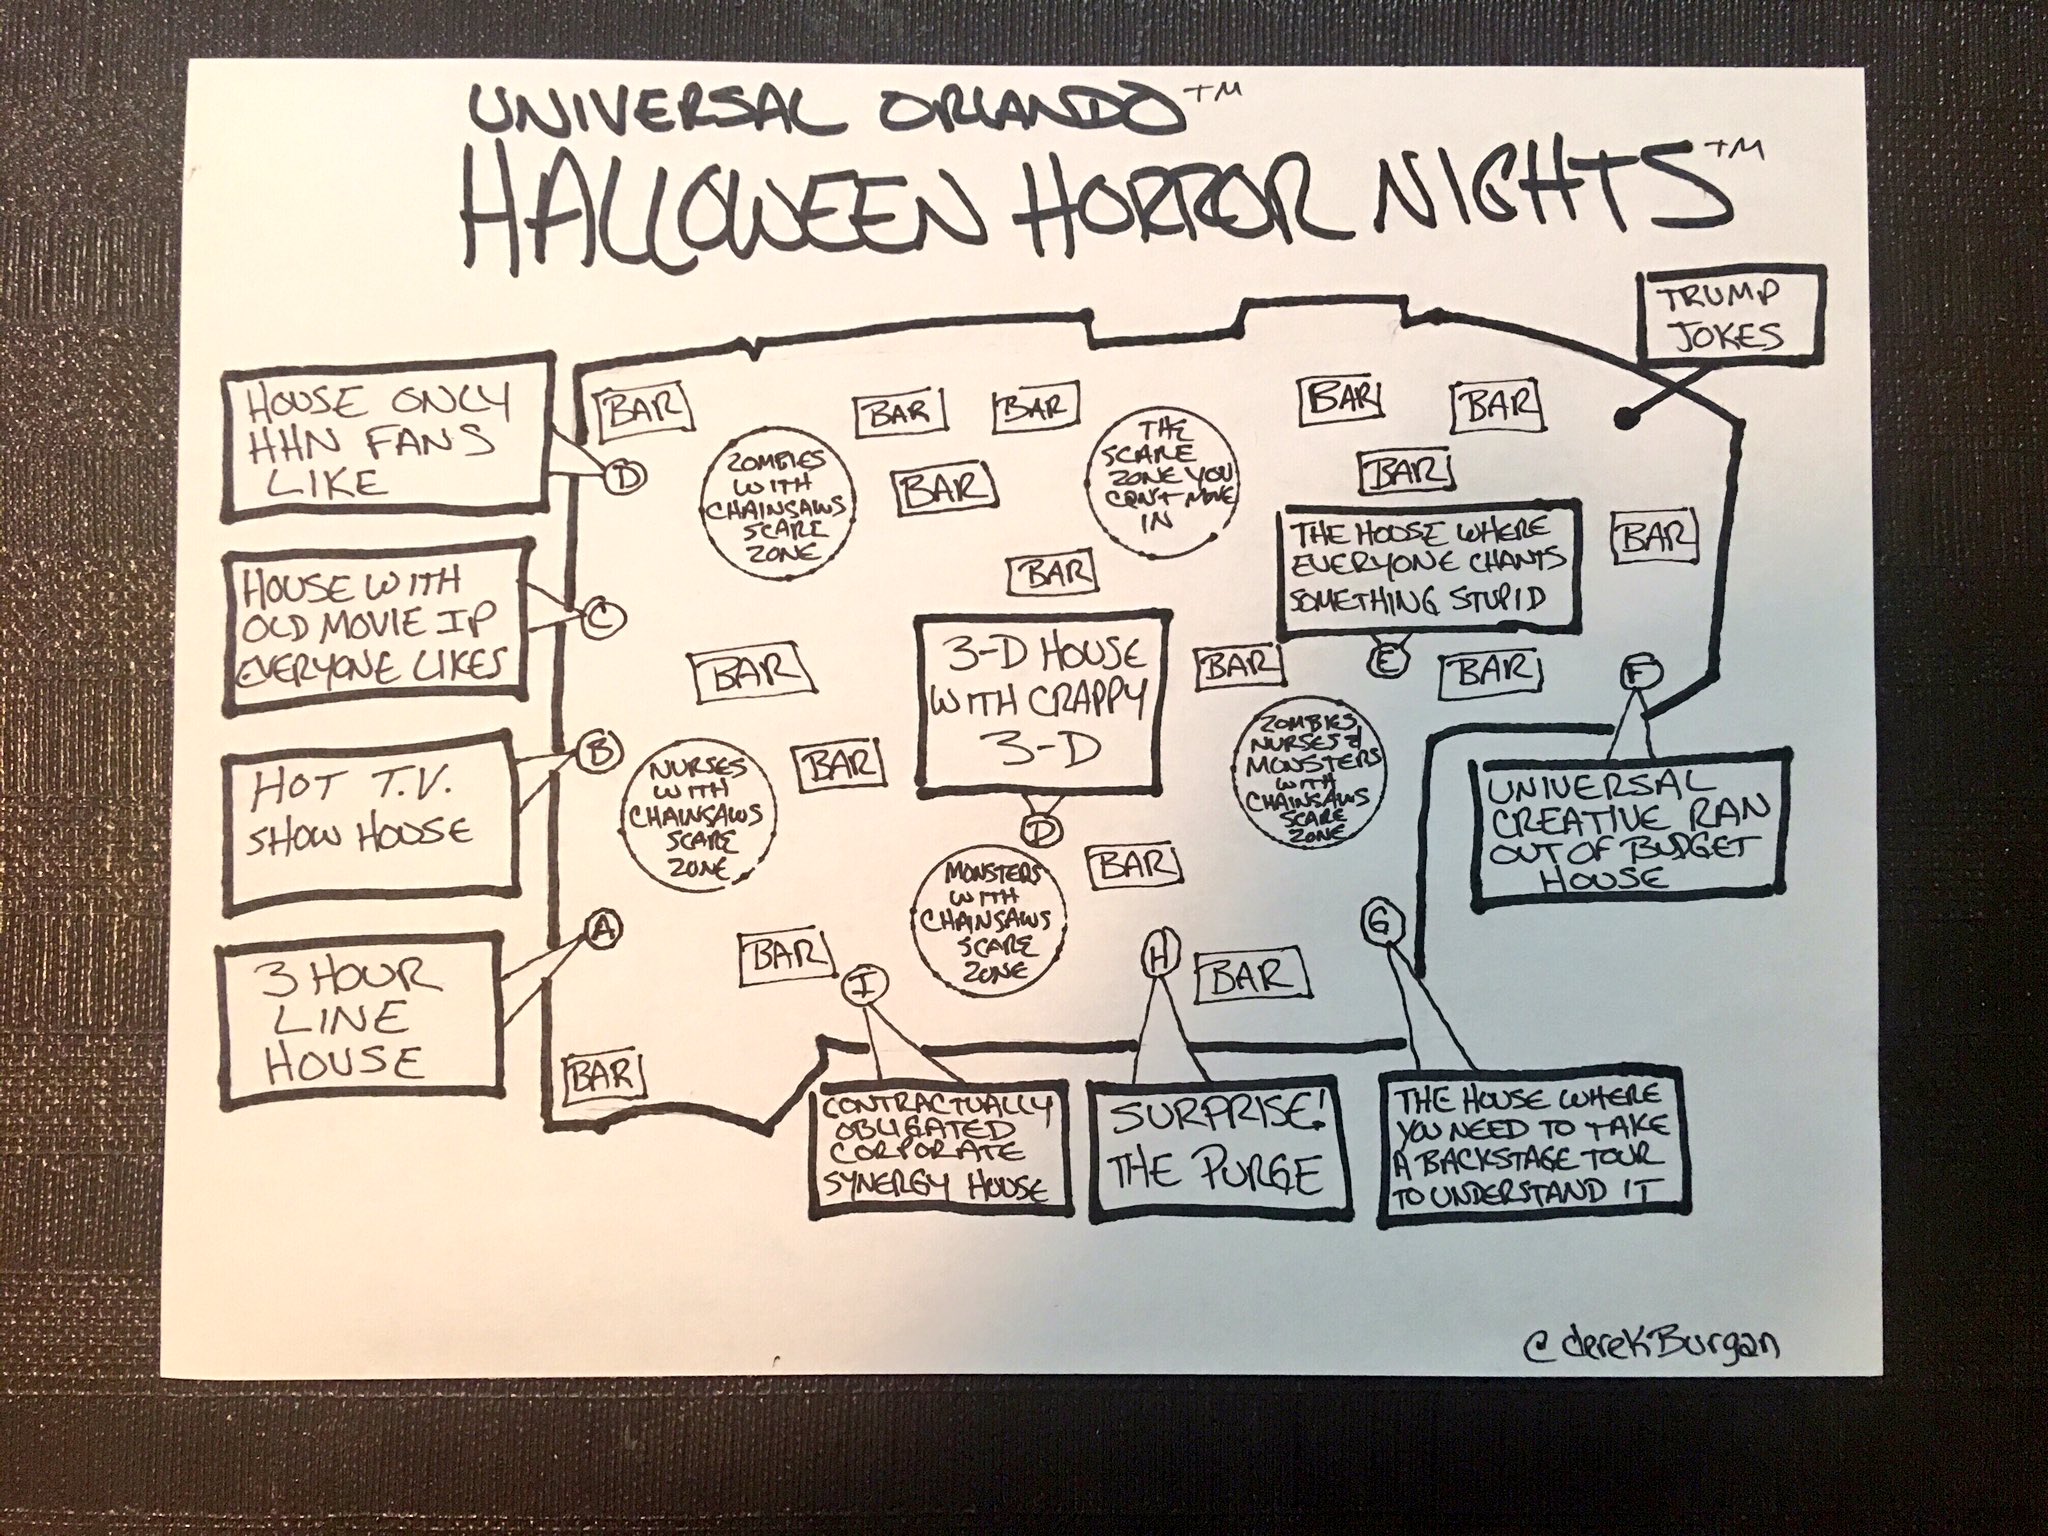 UNIVERSAL ORLANDO™
HALLOWEEN HORROR NIGHTS™
TRUMP
JOKES
HOUSE ONLY
HHN FANS
LIKE
D
BAR
BAR
BAR
BAR
BAR
ZOMBIES
WITH
CHAINSAWS
SCARE
ZONE
BAR
THE
SCARE
ZONE YOU
CAN'T MOVE
IN
BAR
BAR
THE HOUSE WHERE
EVERYONE CHANTS
SOMETHING STUPID
E
HOUSE WITH
OLD MOVIE IP
EVERYONE LIKES
C
BAR
BAR
3-D HOUSE
WITH CRAPPY
3-D
D
BAR
BAR
F
UNIVERSAL
CREATIVE RAN
OUT OF BUDGET
HOUSE
HOT T.V.
SHOW HOUSE
B
NURSES
WITH
CHAINSAWS
SCARE
ZONE
BAR
ZOMBIES,
NURSES &
MONSTERS
WITH
CHAINSAWS
SCARE
ZONE
MONSTERS
WITH
CHAINSAWS
SCARE
ZONE
BAR
3 HOUR
LINE
HOUSE
A
BAR
I
H
BAR
G
BAR
CONTRACTUALLY
OBLIGATED
CORPORATE
SYNERGY HOUSE
SURPRISE!
THE PURGE
THE HOUSE WHERE
YOU NEED TO TAKE
A BACKSTAGE TOUR
TO UNDERSTAND IT
@derekBurgan